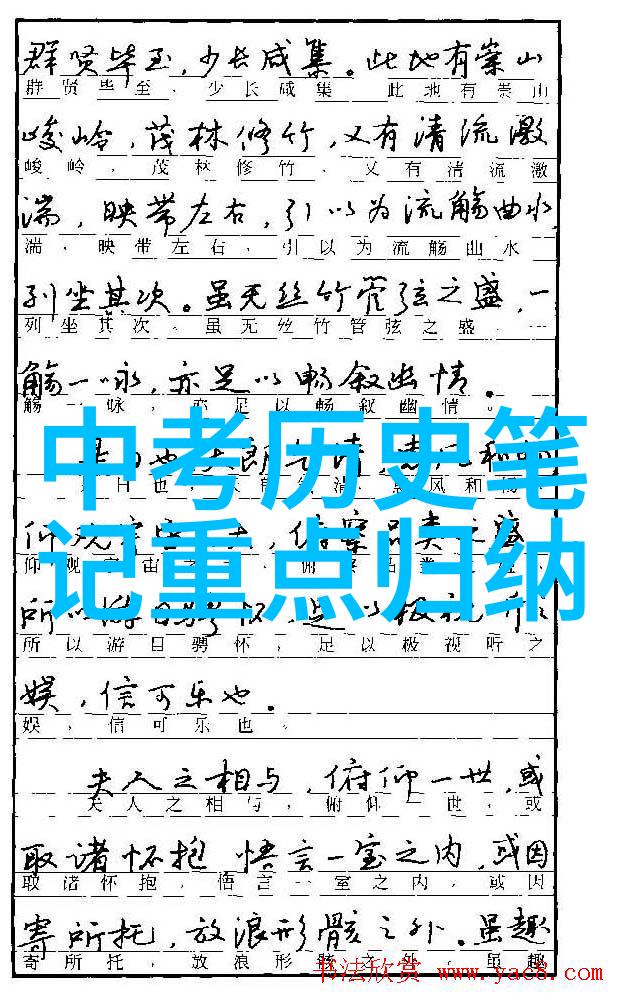 群贤毕至，少长咸集。此地有崇山
群贤毕至，少长咸集。此地有崇山
峻岭，茂林修竹，又有清流激
峻岭，茂林修竹，又有清流激
湍，映带左右，引以为流觞曲水，
湍，映带左右，引以为流觞曲水
列坐其次。虽无丝竹管弦之盛，一
列坐其次。虽无丝竹管弦之盛，一
觞一咏，亦足以畅叙幽情。
觞一咏，亦足以畅叙幽情。
中考历史笔
记重点归纳
所以游目骋怀，足以极视听之
娱，信可乐也。
娱，信可乐也。
夫人之相与，俯仰一世，或
夫人之相与，俯仰一世，或
取诸怀抱 悟言一室之内，或因
取诸怀抱，悟言一室之内，或因
寄所托，放浪形骸之外。虽趣
寄所托，放浪形骸之外。虽趣
书法欣赏 www.yac8.com